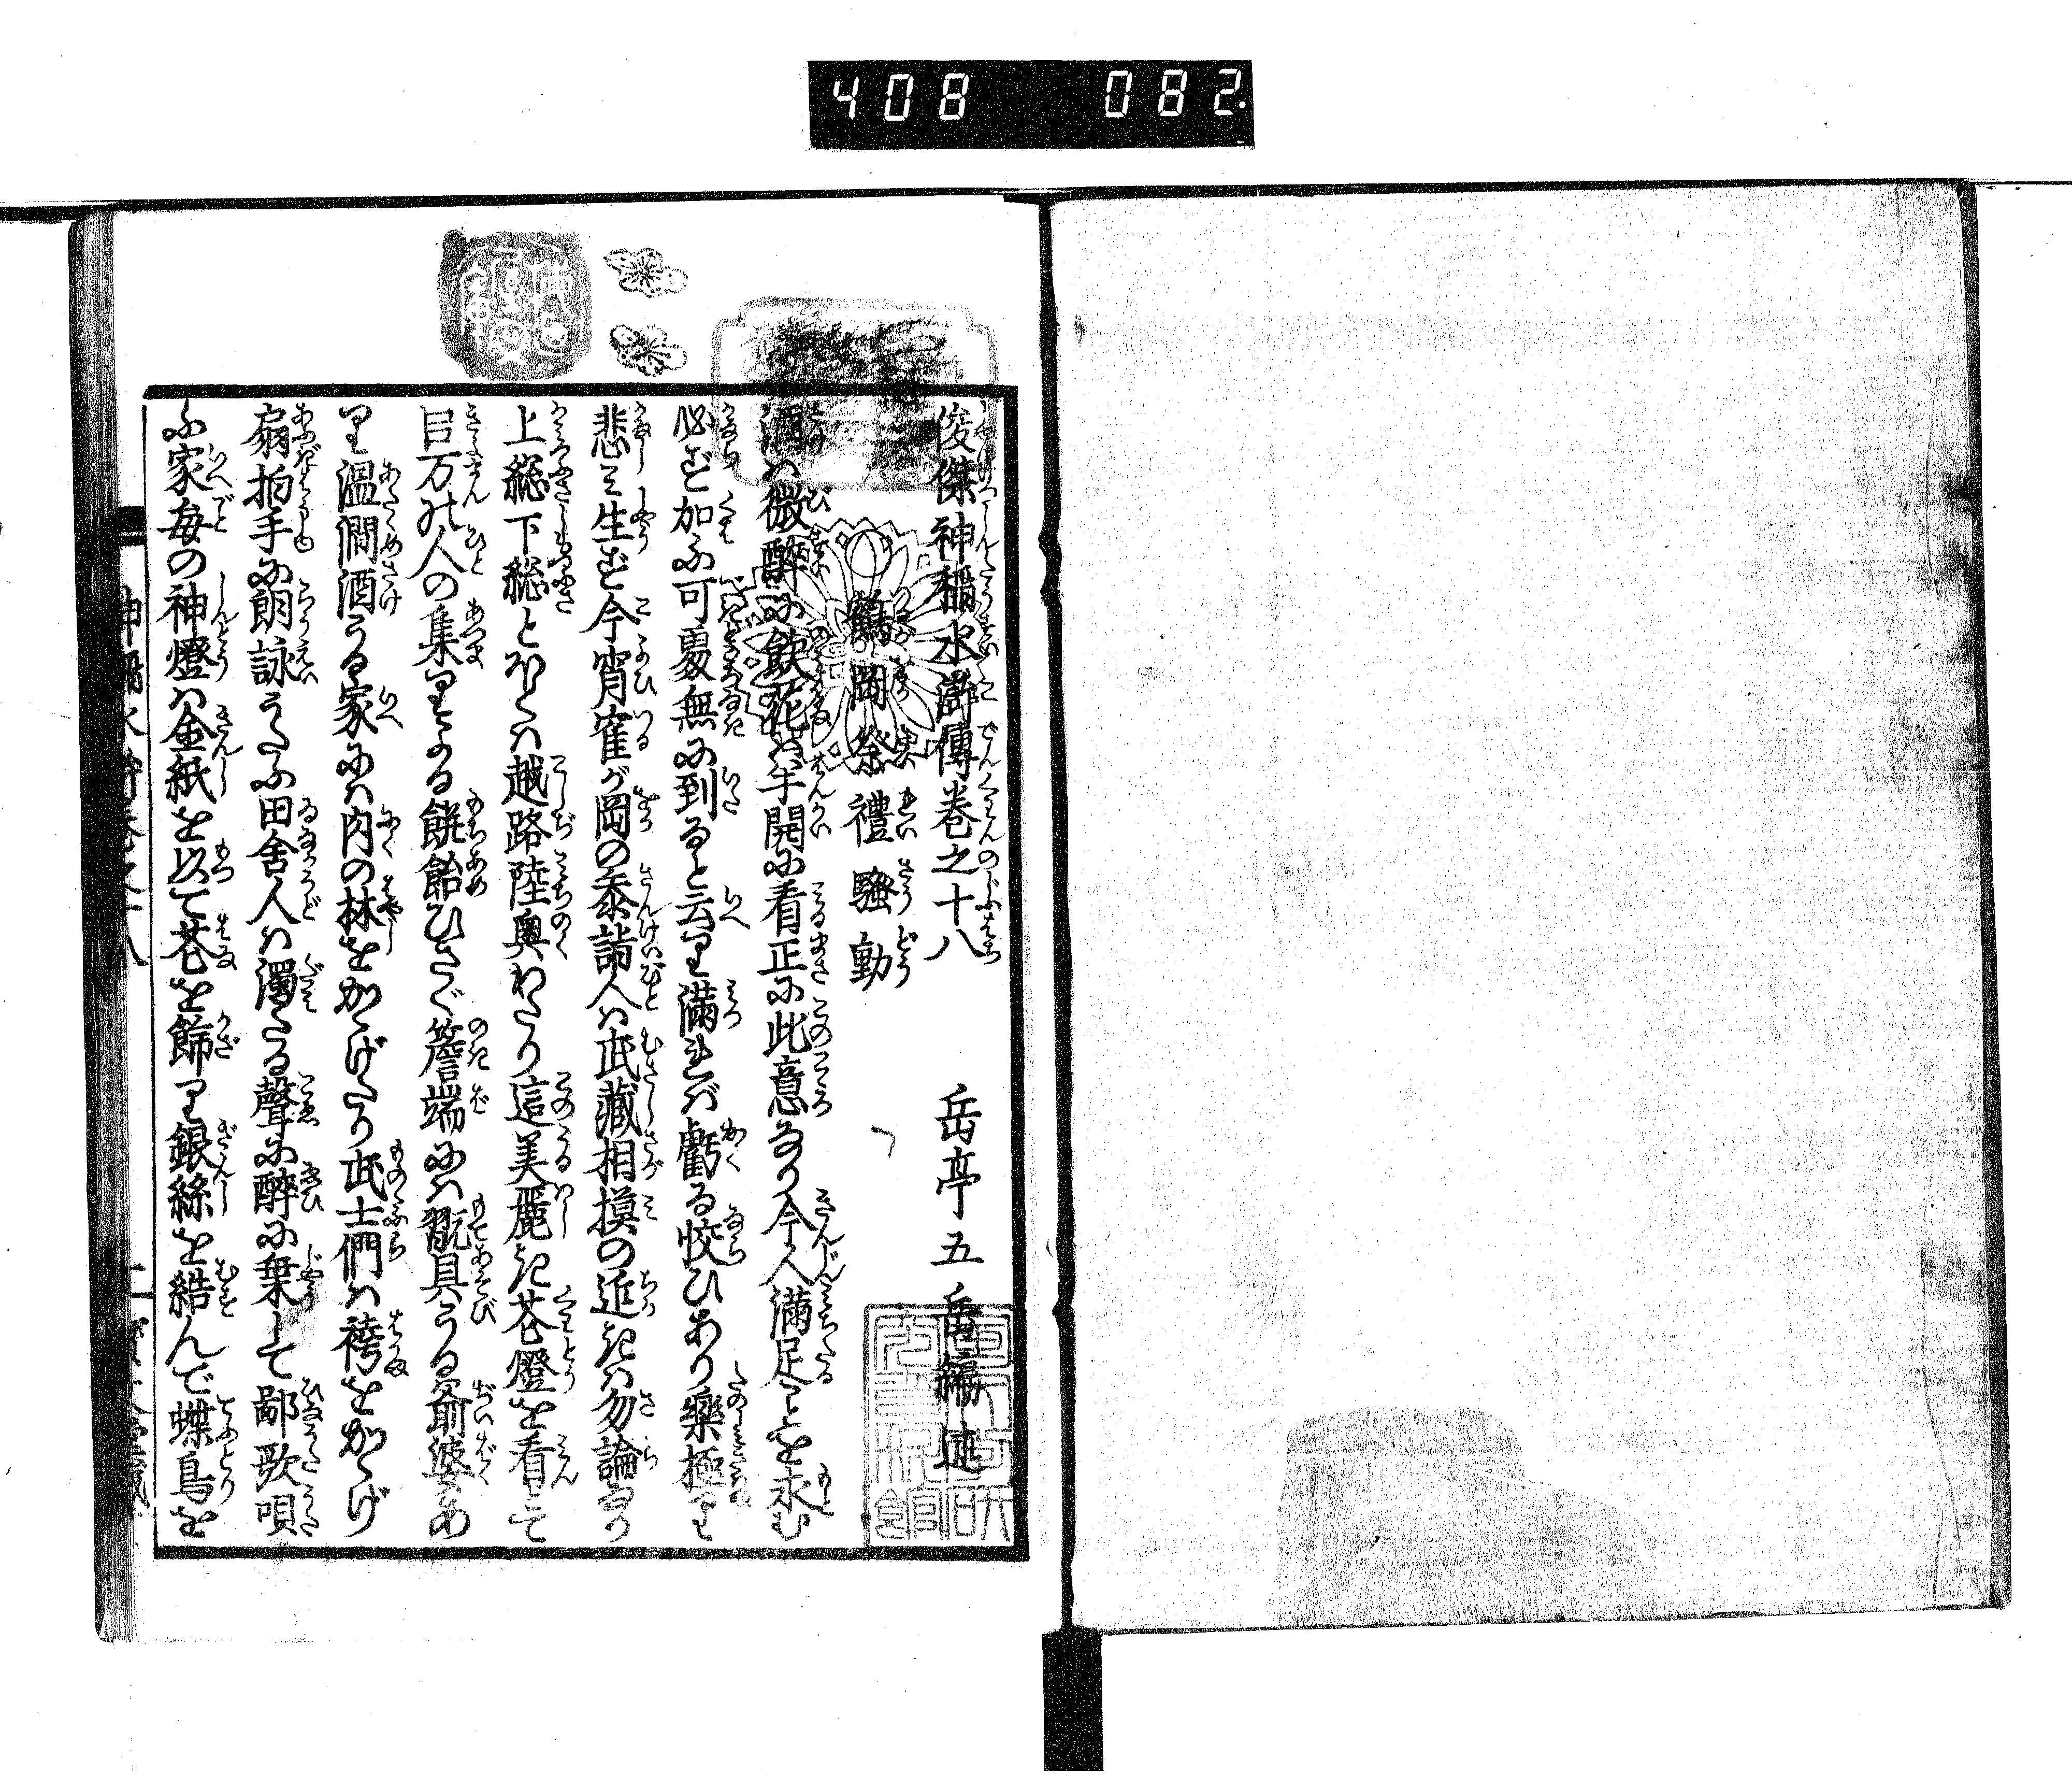 408 082
俊傑神稲水滸傳巻之十八
岳亭五岳編述
鶴岡祭禮騒動
酒ハ微酔に飲花は半開に看正に此意なり今人満足ことを求む
必ず加ふ可憂無に到ると云り満れバ虧る悏ひあり楽極りて
悲ミ生ず今宵寉が岡の参詣人ハ武蔵相摸の近きハ勿論なり
上総下総とほくハ越路陸奥わたり這美麗き花燈を看とて
巨万の人の集りよる餅飴ひさぐ簷端にハ翫具うる爺婆あ
り温燗酒うる家にハ肉の林をかゝげたり武士們ハ袴をかゝげ
扇拍手に朗詠うたふ田舎人ハ濁たる聲に酔に乗して鄙歌唄
ふ家毎の神燈ハ金紙を以て花を飾り銀絲を結んで蝶鳥を